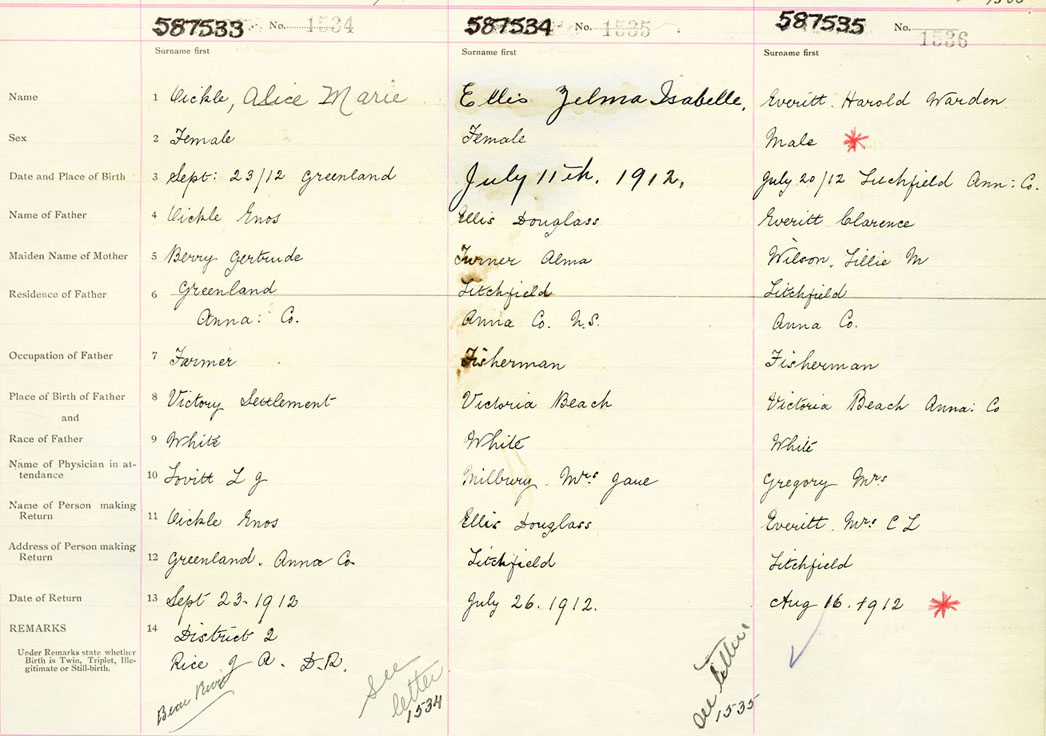 587533 No. 1534 587534 No. 1535 587535 No. 1536
Surname first Surname first Surname first
Name 1 Oickle, Alice Marie Ellis Zelma Isabelle, Everitt Harold Warden
Sex 2 Female Female Male *
Date and Place of Birth 3 Sept: 23/12 Greenland July 11th. 1912, July 20/12 Litchfield Ann: Co.
Name of Father 4 Oickle Enos Ellis Douglass Everitt Clarence
Maiden Name of Mother 5 Berry Gertrude Turner Alma Wilson, Lillie M
Residence of Father 6 Greenland Litchfield Litchfield
Anna: Co. Anna Co. N.S. Anna Co.
Occupation of Father 7 Farmer Fisherman Fisherman
Place of Birth of Father 8 Victory Settlement Victoria Beach Victoria Beach Anna: Co
and
Race of Father 9 White White White
Name of Physician in at-
tendance 10 Lovitt L J Milbury Mrs Jane Gregory Mrs
Name of Person making
Return 11 Oickle Enos Ellis Douglass Everitt Mrs C L
Address of Person making
Return 12 Greenland. Anna Co. Litchfield Litchfield
Date of Return 13 Sept 23-1912 July 26. 1912. Aug 16. 1912 *
REMARKS 14 District 2
Under Remarks state whether
Birth is Twin, Triplet, Ille-
gitimate or Still-birth.
Rice J A. D.R.
Bear River
See
letter
1534
see letter
1535